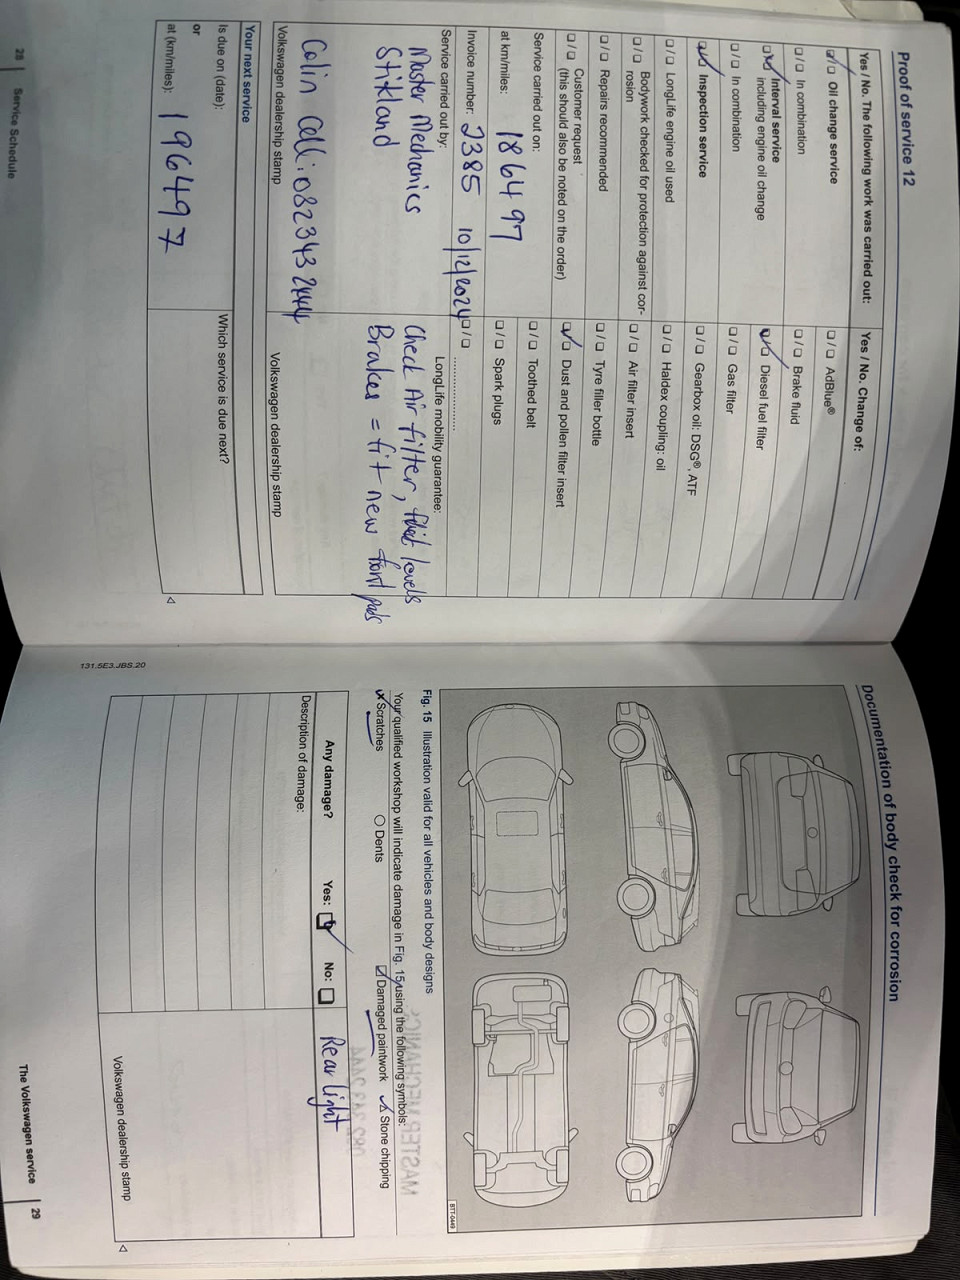 Proof of service 12
Yes / No. The following work was carried out:
☑/☐ Oil change service
☐/☐ In combination
☑/☐ Interval service
including engine oil change
☐/☐ In combination
☑/☐ Inspection service
☐/☐ LongLife engine oil used
☐/☐ Bodywork checked for protection against cor-
rosion
☐/☐ Repairs recommended
☐/☐ Customer request
(this should also be noted on the order)
Service carried out on:
at km/miles: 186497
Invoice number: 2385 10/12/2024
Service carried out by:
Master Mechanics
Stikland
Colin Cell: 082 343 2444
Volkswagen dealership stamp
Yes / No. Change of:
☐/☐ AdBlue®
☐/☐ Brake fluid
☑/☐ Diesel fuel filter
☐/☐ Gas filter
☐/☐ Gearbox oil: DSG®, ATF
☐/☐ Haldex coupling: oil
☐/☐ Air filter insert
☐/☐ Tyre filler bottle
☑/☐ Dust and pollen filter insert
☐/☐ Toothed belt
☐/☐ Spark plugs
☐/☐ ....................
LongLife mobility guarantee:
Check Air filter, fluid levels
Brakes = fit new front pads
Volkswagen dealership stamp
Your next service
Is due on (date):
or
at (km/miles): 196497
Which service is due next?
28 Service Schedule
Documentation of body check for corrosion
BTT-0449
Fig. 15 Illustration valid for all vehicles and body designs
Your qualified workshop will indicate damage in Fig. 15 using the following symbols:
X Scratches
O Dents
☑ Damaged paintwork
△ Stone chipping
MASTER MECHANICS
082 343 2444
Any damage? Yes: ☑ No: ☐ Rear light
Description of damage:
Volkswagen dealership stamp
131.5E3.JBS.20
The Volkswagen service 29